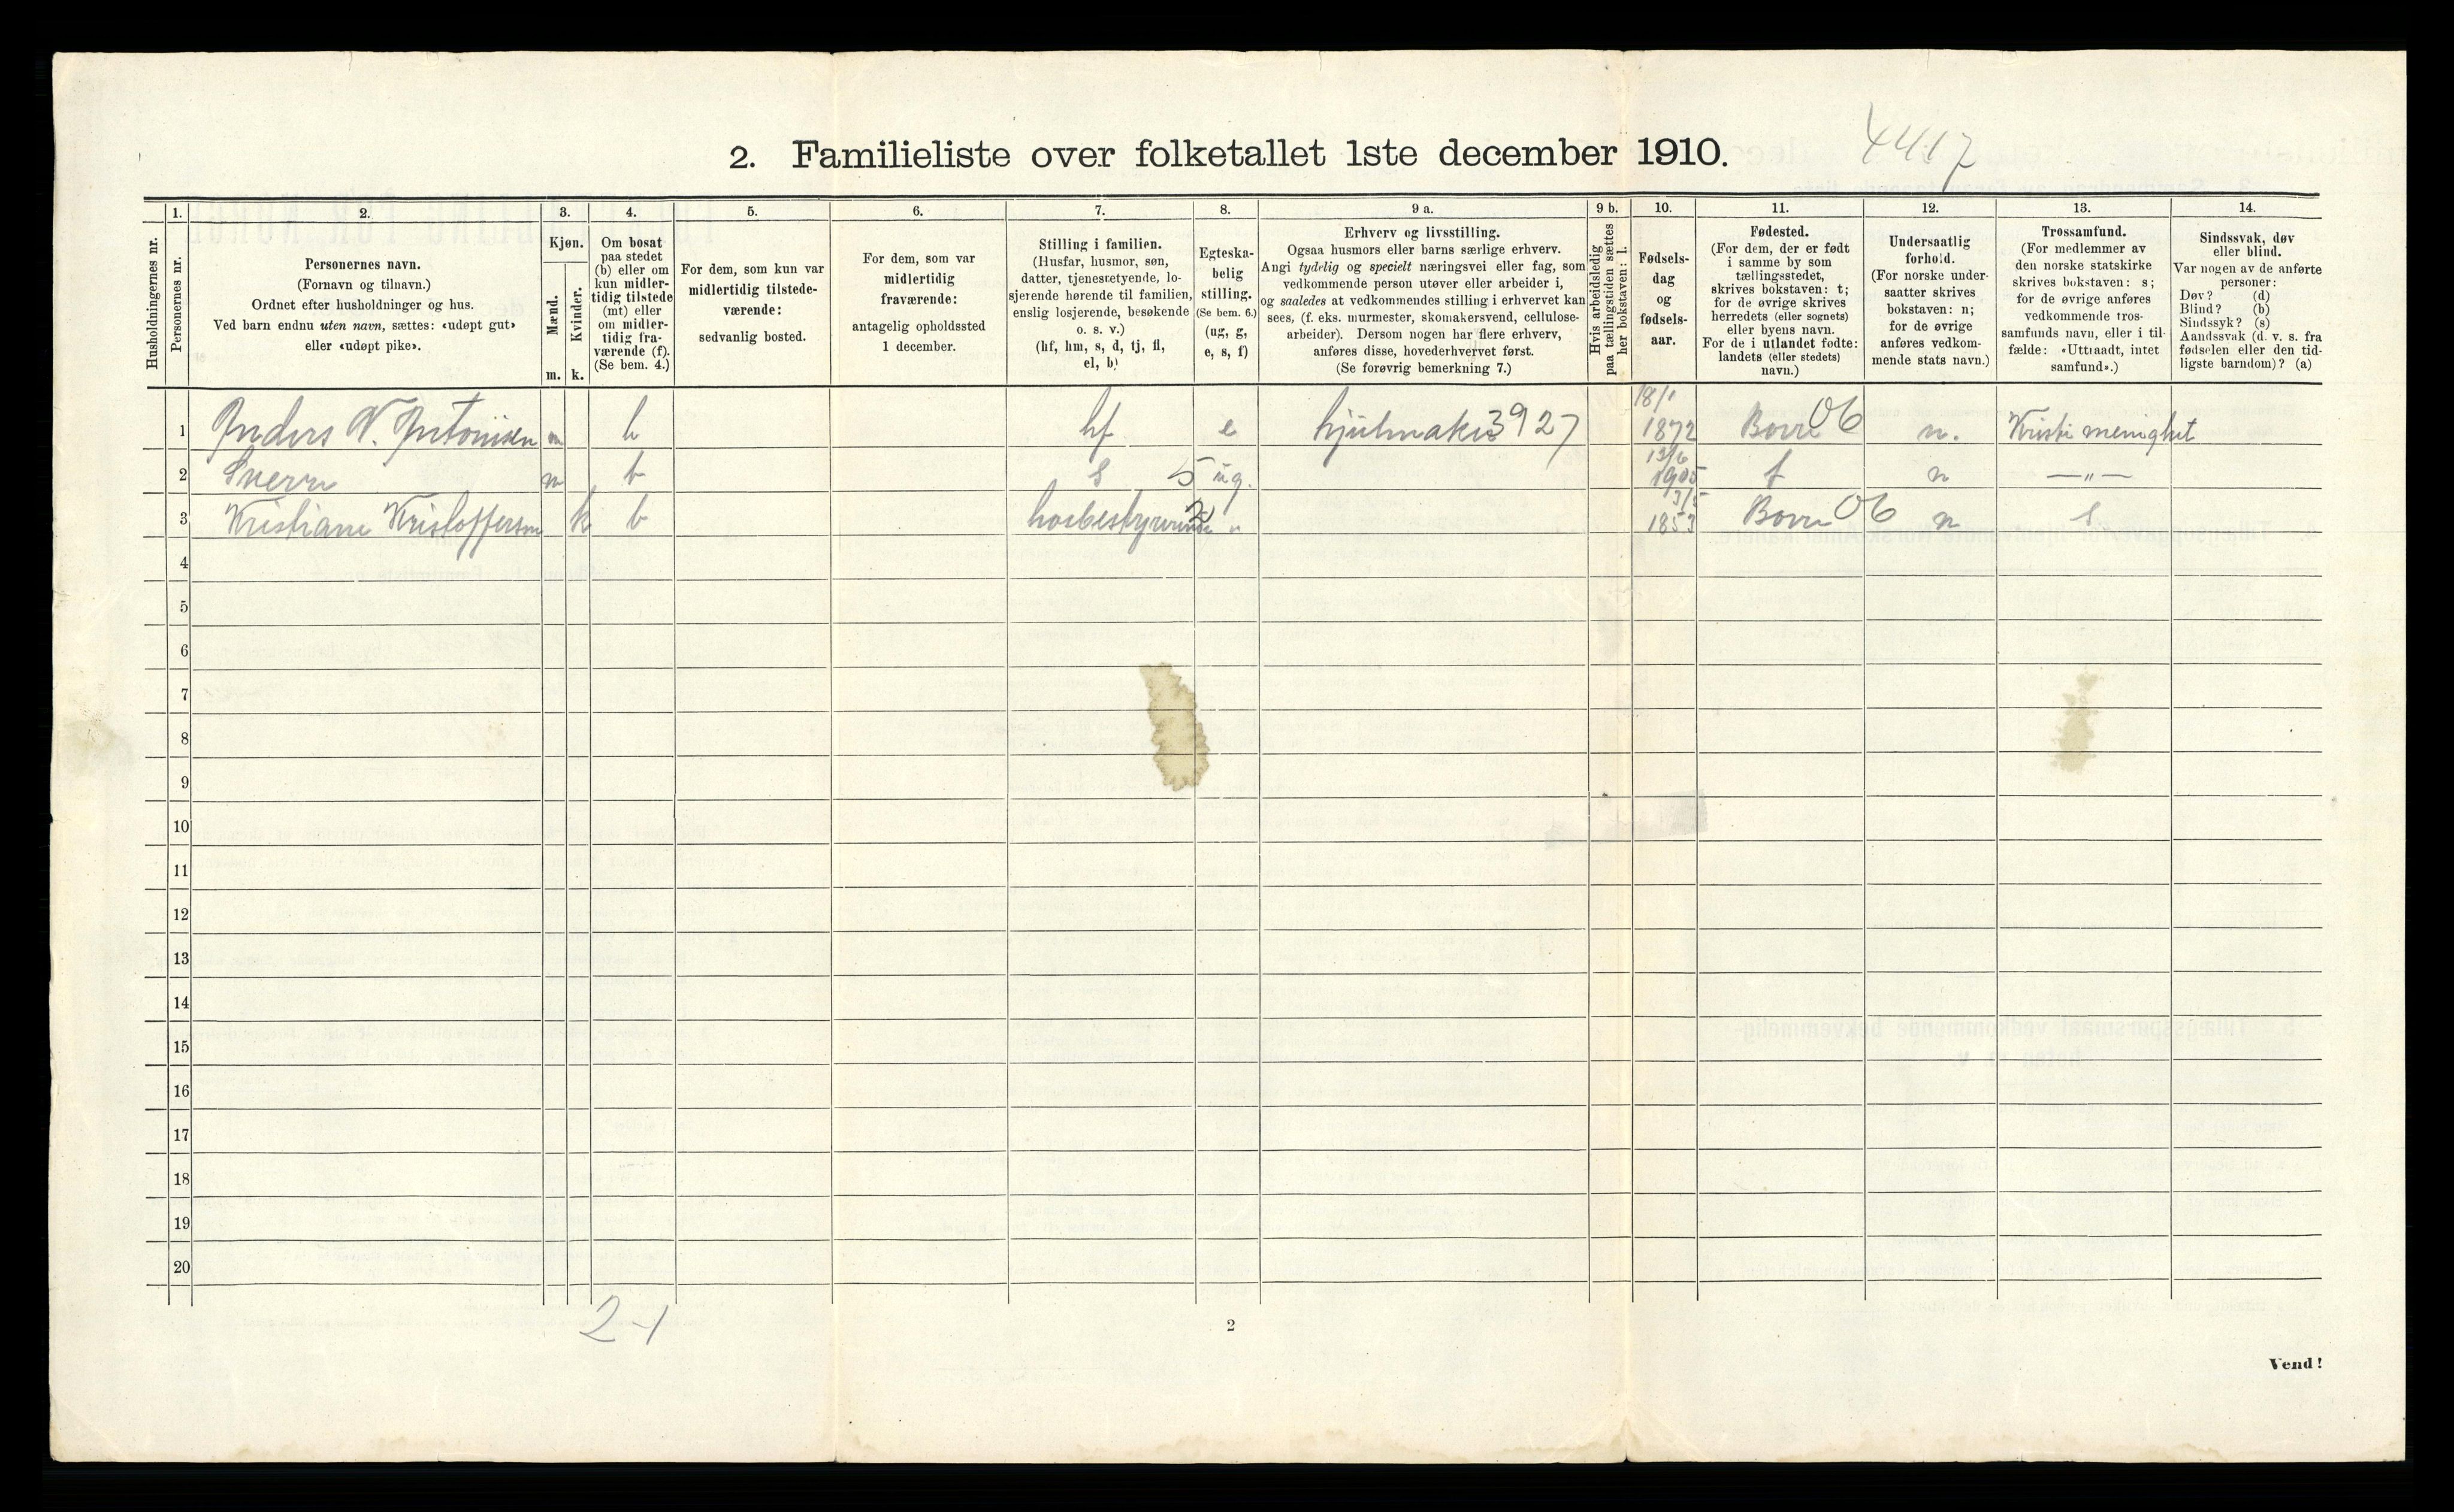 2. Familieliste over folketallet 1ste december 1910.
4417
Husholdningernes nr.
1.
Personernes nr.
2.
Personernes navn.
(Fornavn og tilnavn.)
Ordnet efter husholdninger og hus.
Ved barn endnu uten navn, sættes: «udøpt gut»
eller «udøpt pike».
3.
Kjøn.
Mænd.
Kvinder.
m. k.
4.
Om bosat
paa stedet
(b) eller om
kun midler-
tidig tilstede
(mt) eller
om midler-
tidig fra-
værende (f).
(Se bem. 4.)
5.
For dem, som kun var
midlertidig tilstede-
værende:
sedvanlig bosted.
6.
For dem, som var
midlertidig
fraværende:
antagelig opholdssted
1 december.
7.
Stilling i familien.
(Husfar, husmor, søn,
datter, tjenestetyende, lo-
sjerende hørende til familien,
enslig losjerende, besøkende
o. s. v.)
(hf, hm, s, d, tj, fl,
el, b)
8.
Egteska-
belig
stilling.
(Se bem. 6.)
(ug, g,
e, s, f)
9 a.
Erhverv og livsstilling.
Ogsaa husmors eller barns særlige erhverv.
Angi tydelig og specielt næringsvei eller fag, som
vedkommende person utøver eller arbeider i,
og saaledes at vedkommendes stilling i erhvervet kan
sees, (f. eks. murmester, skomakersvend, cellulose-
arbeider). Dersom nogen har flere erhverv,
anføres disse, hovederhvervet først.
(Se forøvrig bemerkning 7.)
9 b.
Hvis arbeidsledig
paa tællingstiden sættes
her bokstaven: l.
10.
Fødsels-
dag
og
fødsels-
aar.
11.
Fødested.
(For dem, der er født
i samme by som
tællingsstedet,
skrives bokstaven: t;
for de øvrige skrives
herredets (eller sognets)
eller byens navn.
For de i utlandet fødte:
landets (eller stedets)
navn.)
12.
Undersaatlig
forhold.
(For norske under-
saatter skrives
bokstaven: n;
for de øvrige
anføres vedkom-
mende stats navn.)
13.
Trossamfund.
(For medlemmer av
den norske statskirke
skrives bokstaven: s;
for de øvrige anføres
vedkommende tros-
samfunds navn, eller i til-
fælde: «Uttraadt, intet
samfund».)
14.
Sindssvak, døv
eller blind.
Var nogen av de anførte
personer:
Døv? (d)
Blind? (b)
Sindssyk? (s)
Aandssvak (d. v. s. fra
fødselen eller den tid-
ligste barndom)? (a)
1 Anders N. Antonisen m b hf e hjulmaker 3927 18/1 1872 Borre 06 n. Kristi menighet
2 Sverre m b s 5 ug. 13/6 1905 t n —„—
3 Kristiane Kristoffersen k b husbestyrerinde 2 13/5 1853 Borre 06 n s
4
5
6
7
8
9
10
11
12
13
14
15
16
17
18
19
20
2-1
2
Vend!